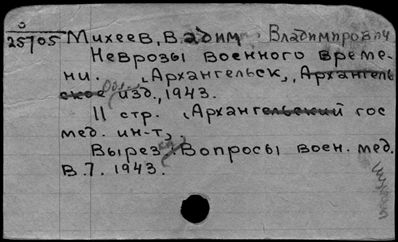 5
25705 Михеев, Вадим Владимирович
Неврозы военного време-
ни. Архангельск, Архангель
ское Обл. изд., 1943.
11 стр. Архангельский гос
мед. ин-т,
Вырез из: Вопросы воен. мед.
В.7. 1943.